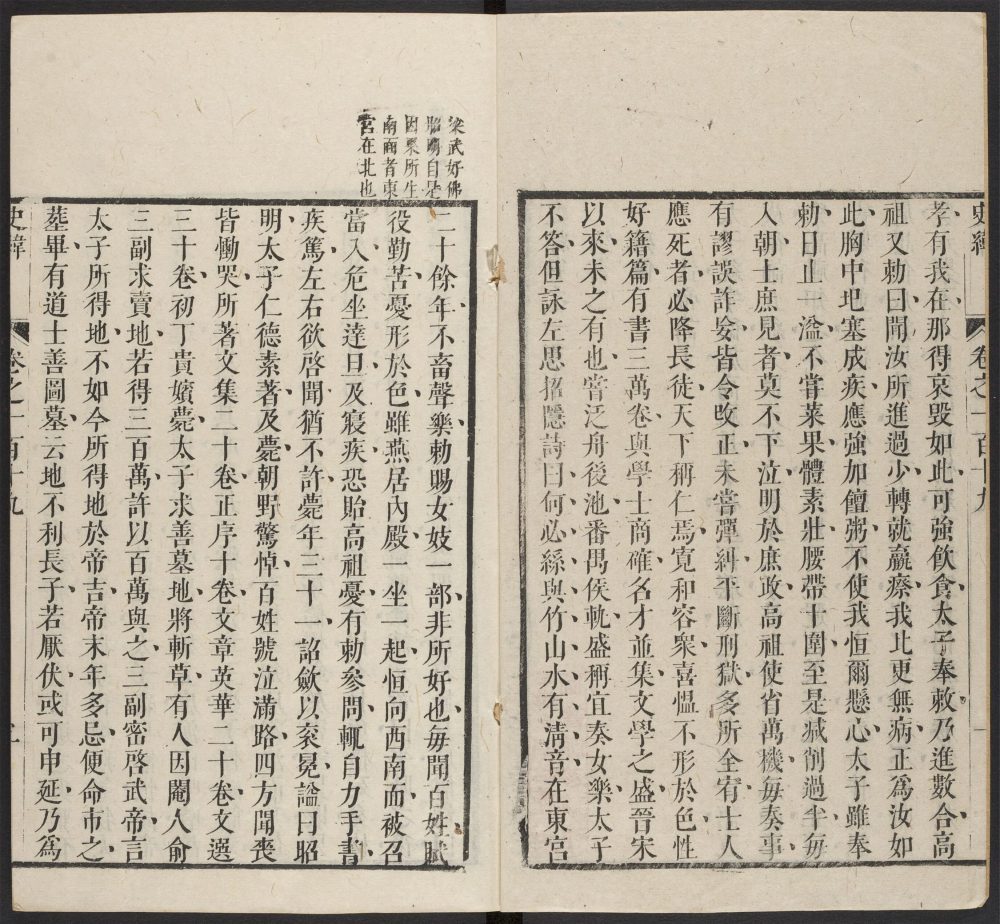 史緯
卷之一百十九
一
孝有我在那得哀毀如此可強飲食太子奉敕乃進數合高
祖又勅曰聞汝所進過少轉就羸瘵我比更無病正爲汝如
此胸中圯塞成疾應強加饘粥不使我恒爾懸心太子雖奉
勅日止一溢不嘗菜果體素壯腰帶十圍至是減削過半每
入朝士庶見者莫不下泣明於庶政高祖使省萬機每奏事
有謬誤詐妄皆令改正未嘗彈糾平斷刑獄多所全宥士人
應死者必降長徒天下稱仁焉寬和容衆喜慍不形於色性
好籍篇有書三萬卷與學士商確名才並集文學之盛晉宋
以來未之有也嘗泛舟後池番禺侯軌盛稱宜奏女樂太子
不答但詠左思招隱詩曰何必絲與竹山水有淸音在東宮
梁武好佛
昭明自是
因果所生
南面者東
宮在北也
二十餘年不畜聲樂勅賜女妓一部非所好也每聞百姓賦
役勤苦憂形於色雖燕居內殿一坐一起恒向西南面被召
當入危坐達旦及寢疾恐貽高祖憂有勅參問輒自力手書
疾篤左右欲啓聞猶不許薨年三十一詔斂以衮冕謚曰昭
明太子仁德素著及薨朝野驚悼百姓號泣滿路四方聞喪
皆慟哭所著文集二十卷正序十卷文章英華二十卷文選
三十卷初丁貴嬪薨太子求善墓地將斬草有人因閹人俞
三副求賣地若得三百萬許以百萬與之三副密啓武帝言
太子所得地不如今所得地於帝吉帝末年多忌便命市之
葬畢有道士善圖墓云地不利長子若厭伏或可申延乃爲
史緯
卷之一百十九